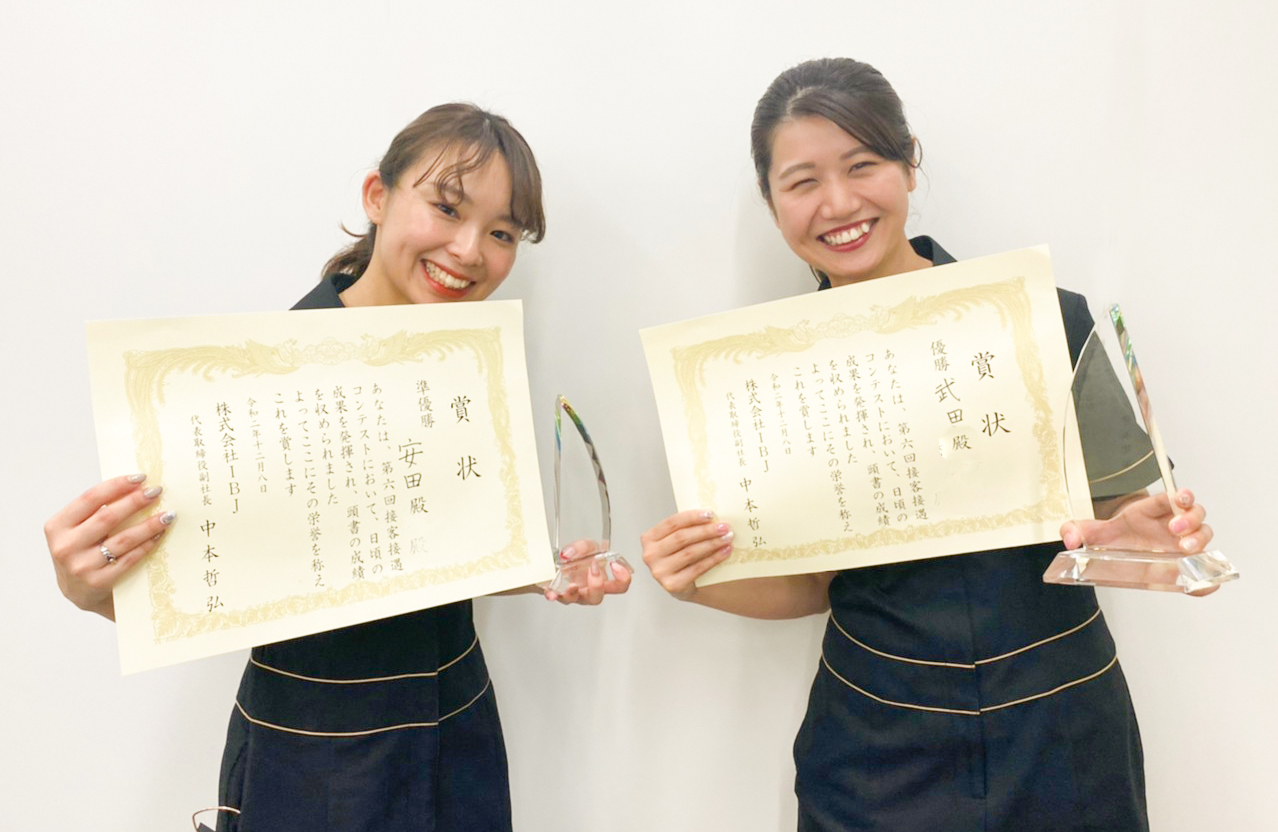 賞状
準優勝
安田殿 殿
あなたは、第六回接客接遇
コンテストにおいて、日頃の
成果を発揮され、頭書の成績
を収められました
よってここにその栄誉を称え
これを賞します
令和二年十二月八日
株式会社IBJ
代表取締役副社長 中本哲弘
賞状
優勝 武田殿
あなたは、第六回接客接遇
コンテストにおいて、日頃の
成果を発揮され、頭書の成績
を収められました
よってここにその栄誉を称え
これを賞します
令和二年十二月八日
株式会社IBJ
代表取締役副社長 中本哲弘